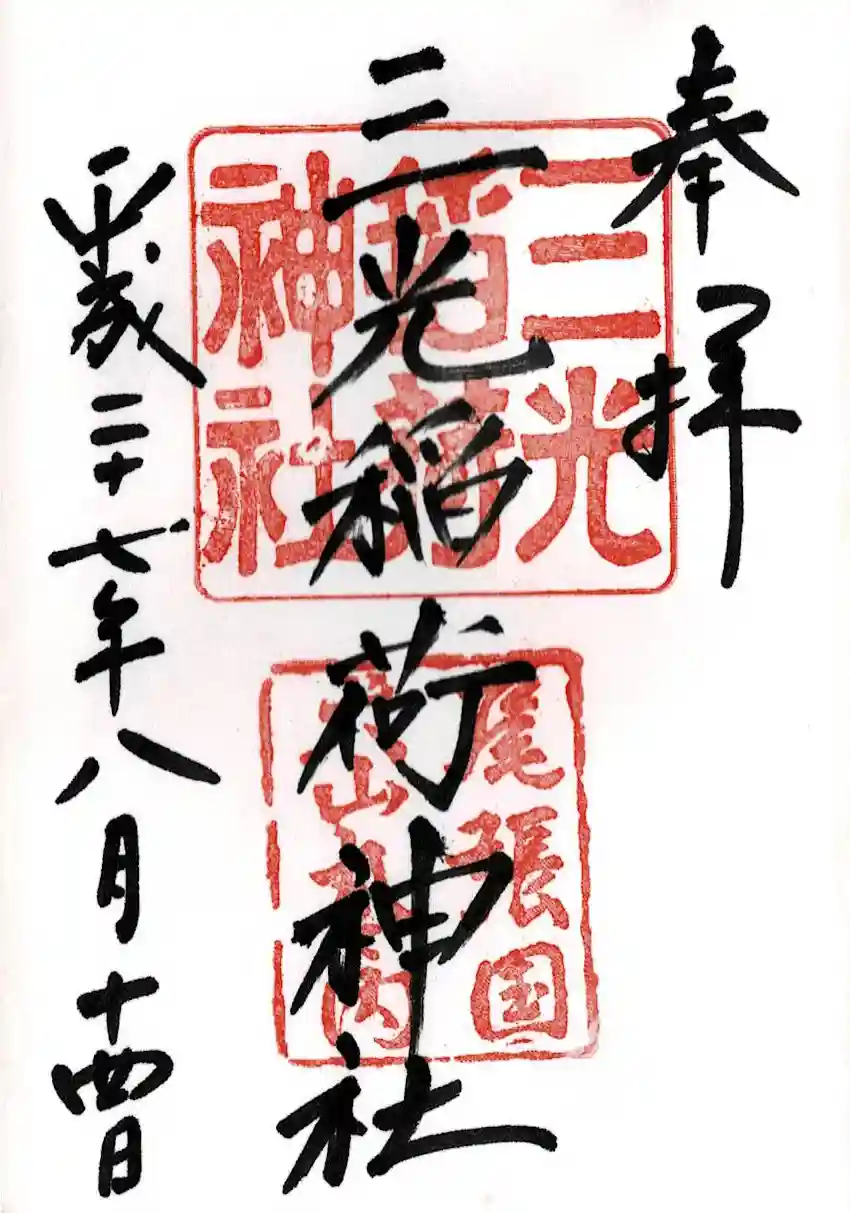 奉拝
三光稲荷神社
平成二十七年八月十四日
三光
稲荷
神社
尾張国
犬山丸の内